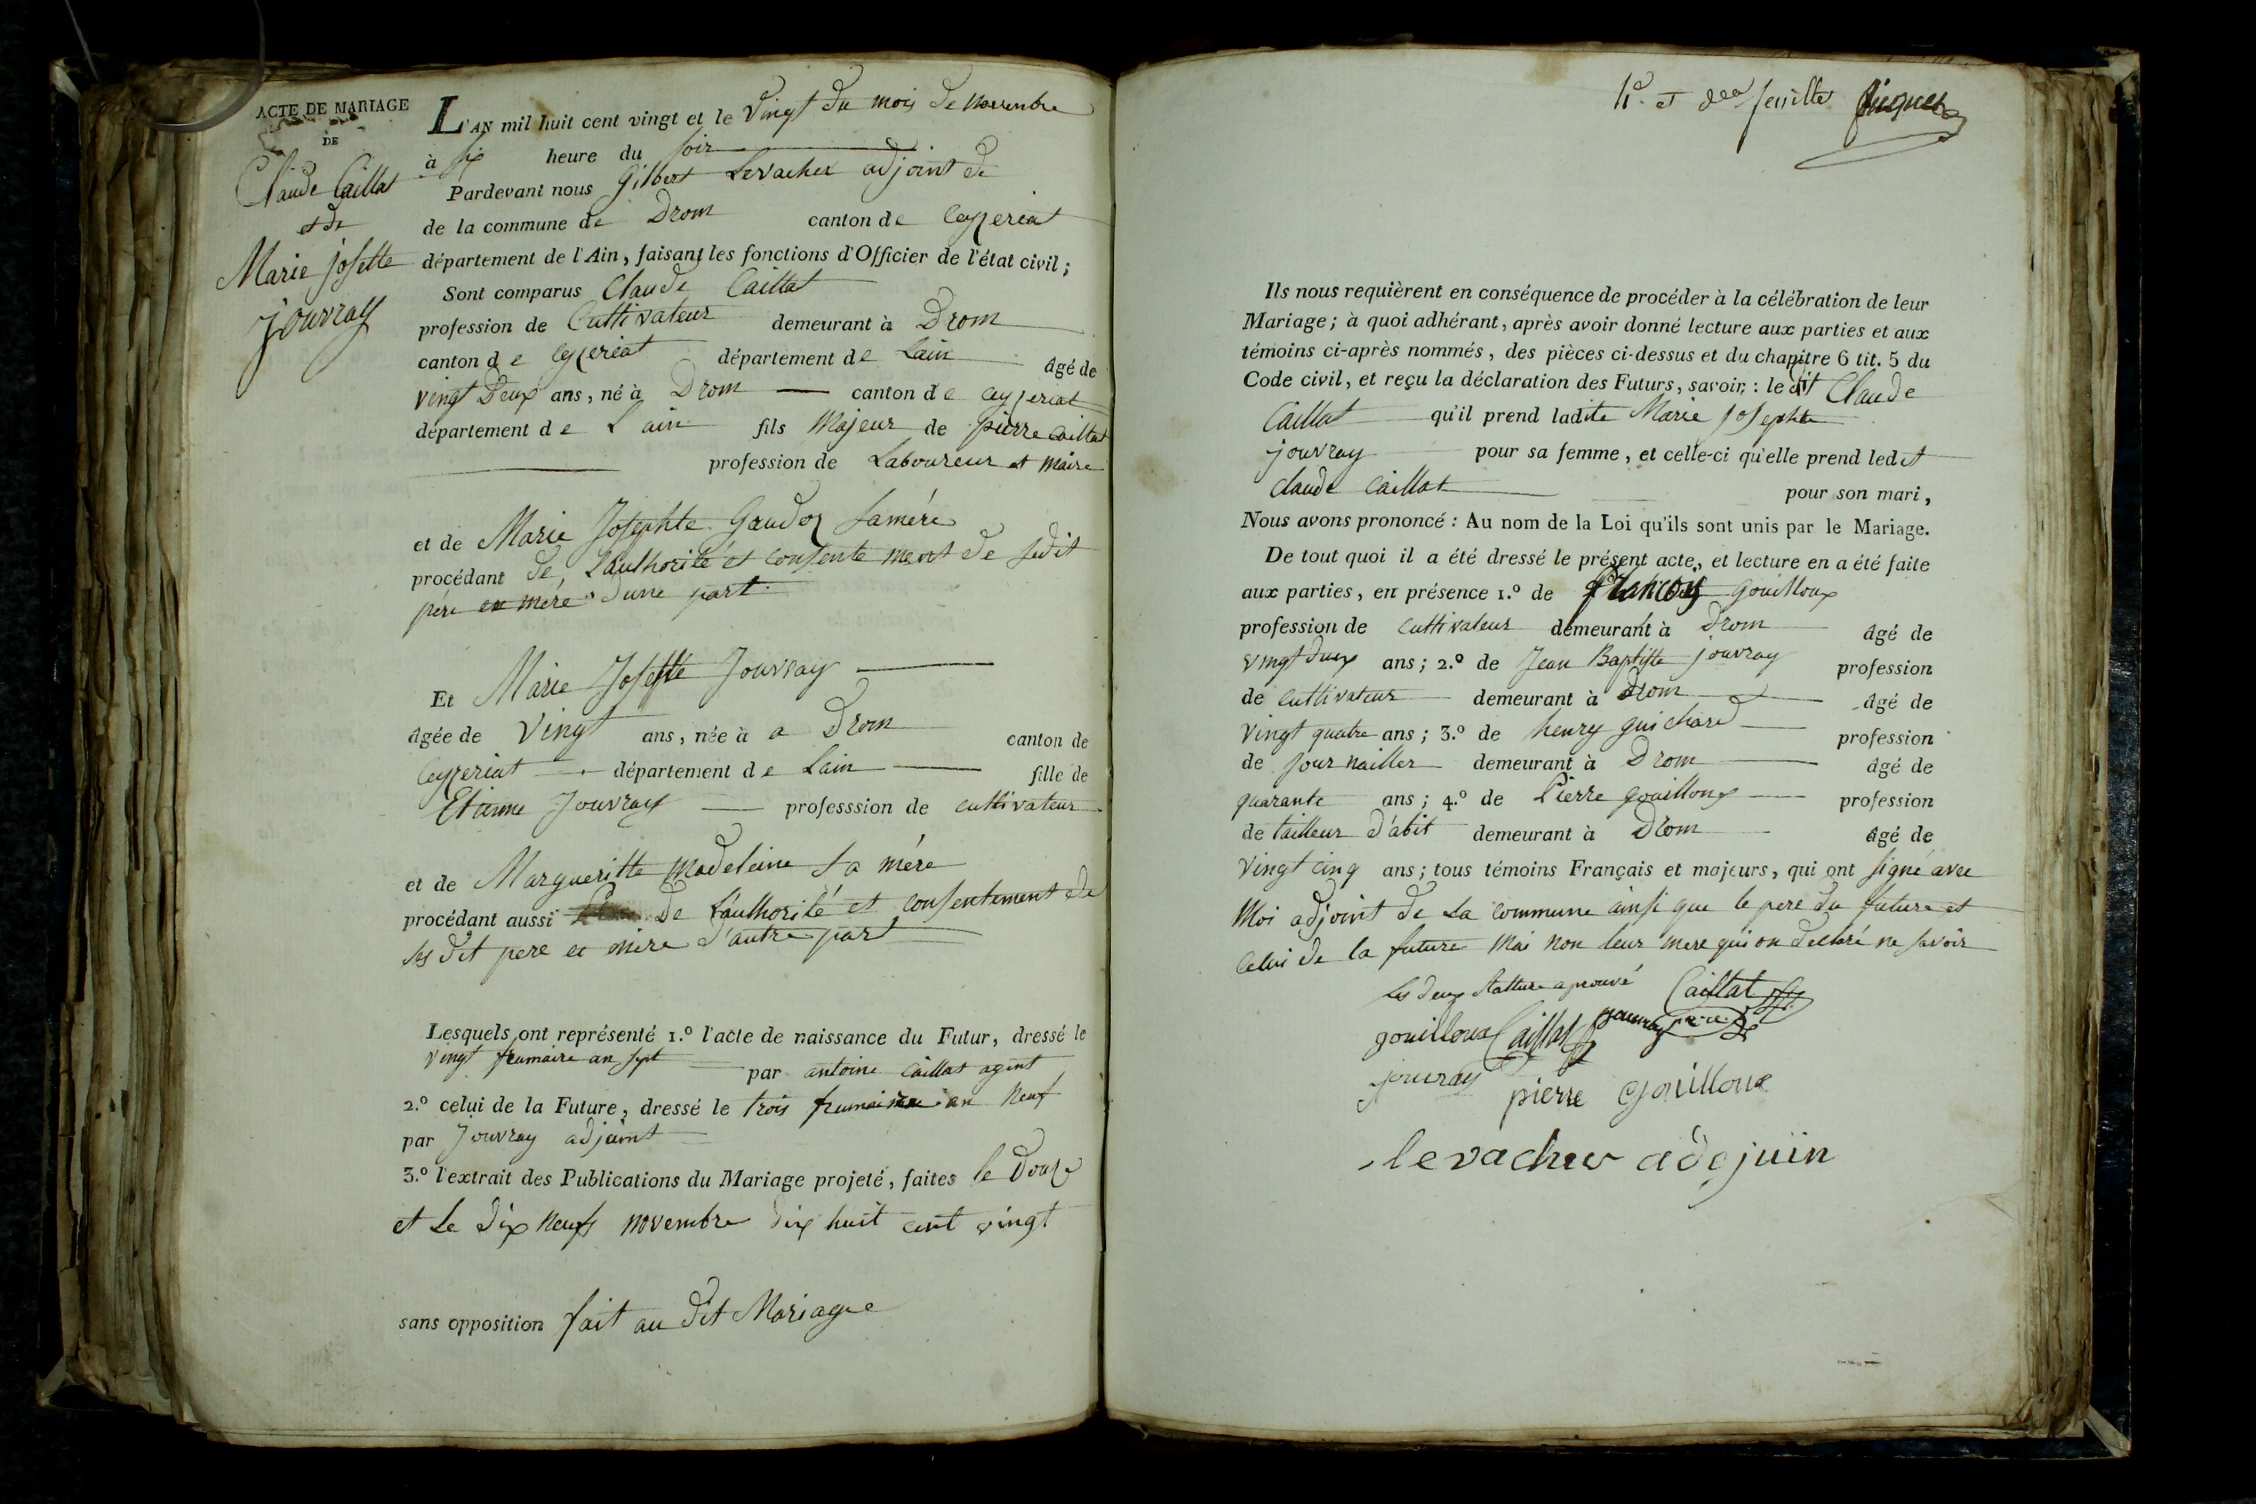 ACTE DE MARIAGE
DE
Claude Caillat
et de
Marie josette
Jouvray
L'AN mil huit cent vingt et le vingt du mois de novembre
à six heure du soir
Pardevant nous Gilbert Levacher adjoint de
de la commune de Drom canton de Ceyzeriat
département de l'Ain, faisant les fonctions d'Officier de l'état civil;
Sont comparus Claude Caillat
profession de Cultivateur demeurant à Drom
canton de Ceyzeriat département de Lain âgé de
vingt Deux ans, né à Drom canton de Ceyzeriat
département de L'ain fils Majeur de pierre Caillat
profession de Laboureur et maire
et de Marie Josephte Gaudoz sa mére
procédant de L'authorité et consentement de sedit
pére et mere d'une part
Et Marie Josette Jouvray
âgée de Vingt ans, née à a Drom canton de
Ceyzeriat département de Lain fille de
Etienne Jouvray professsion de cultivateur
et de Margueritte madeleine sa mére
procédant aussi De L'authorité et consentement de
ses dit pere et mere d'autre part
Lesquels ont représenté 1.º l'acte de naissance du Futur, dressé le
vingt frumaire an sept par antoine Caillat agent
2.º celui de la Future, dressé le trois frumaire an neuf
par Jouvray adjoint
3.º l'extrait des Publications du Mariage projeté, faites le Douze
et Le Dix neufs novembre dix huit cent vingt
sans opposition fait au dit Mariage
feuille
Ils nous requièrent en conséquence de procéder à la célébration de leur
Mariage; à quoi adhérant, après avoir donné lecture aux parties et aux
témoins ci-après nommés, des pièces ci-dessus et du chapitre 6 tit. 5 du
Code civil, et reçu la déclaration des Futurs, savoir: le dit Claude
Caillat qu'il prend ladite Marie Josephte
jouvray pour sa femme, et celle-ci qu'elle prend ledit
Claude Caillat pour son mari,
Nous avons prononcé: Au nom de la Loi qu'ils sont unis par le Mariage.
De tout quoi il a été dressé le présent acte, et lecture en a été faite
aux parties, en présence 1.º de francois gouilloux
profession de cultivateur demeurant à Drom âgé de
vingt deux ans; 2.º de Jean Baptiste jouvray profession
de cultivateur demeurant à Drom âgé de
Vingt quatre ans; 3.º de henry guichard profession
de journailler demeurant à Drom âgé de
quarante ans; 4.º de Pierre gouilloux profession
de tailleur d'abit demeurant à Drom âgé de
Vingt cinq ans; tous témoins Français et majeurs, qui ont signé avec
Moi adjoint de La commune ainsi que le pere du future et
Celui de la future mai non leur mere qui on declaré ne savoir
Les deux Rature aprouvé Caillat
gouilloux Caillat jouvray pere
jouvray pierre gouilloux
levacher adojuin